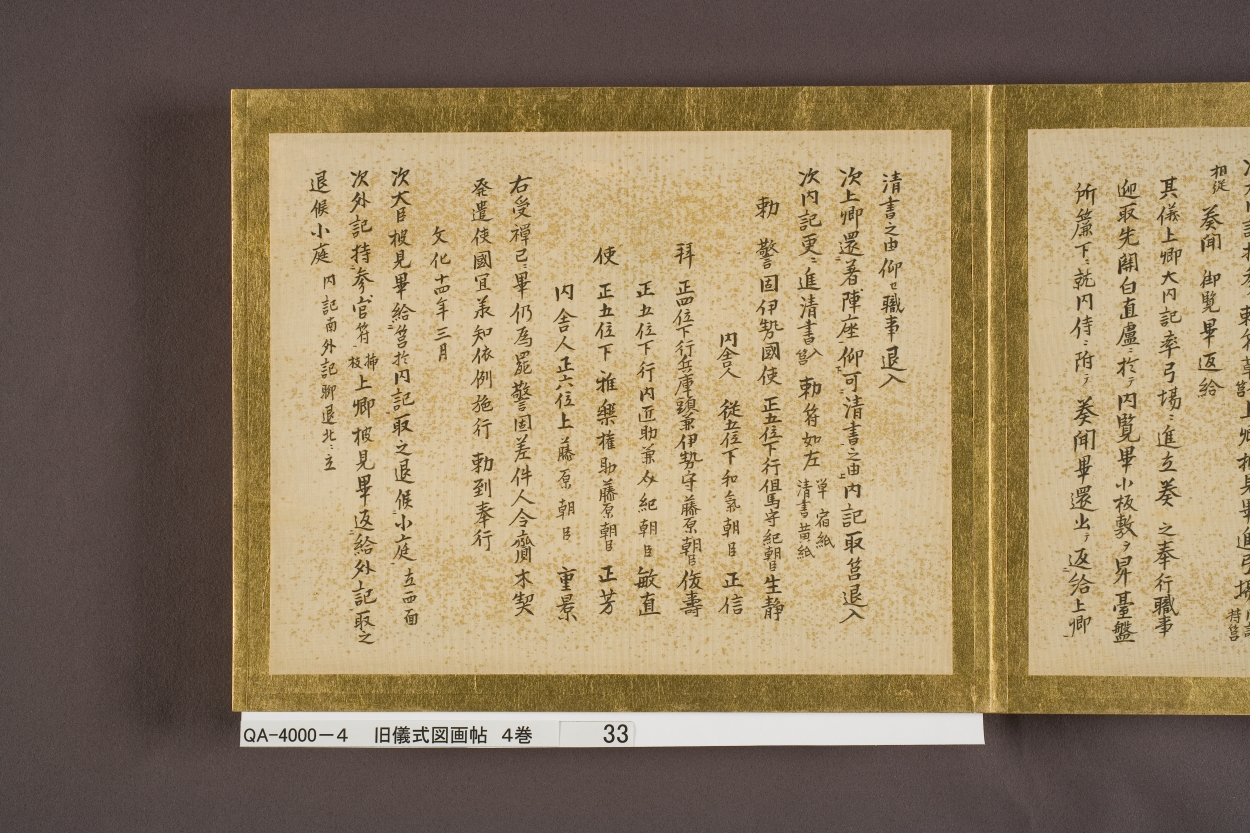 相従 奏聞 御覧畢返給
其儀上卿大内記率弓場ニ進立奏 之奉行職事
迎取先関白直廬ニ於テ内覧畢小板敷ヲ昇臺盤
所簾下ニ乾内侍ニ附テ奏聞畢還出テ返給上卿
清書之由仰ニ職事退入
次上卿還著陣座仰可清書之由内記取筥退入
次内記更ニ進清書入筥 勅符如左 単宿紙 清書黄紙
勅 警固伊勢國使 正五位下行但馬守紀朝臣生静
内舎人 従五位下和氣朝臣正信
拜 正四位下行兵庫頭兼伊勢守藤原朝臣俊壽
正五位下行内匠助兼 紀朝臣敏直
使 正五位下雅樂權助藤原朝臣正芳
内舎人正六位上藤原朝臣重景
右受禪已ニ畢仍為罷警固差件人令齎木契
発遣使國宜承知依例施行 勅到奉行
文化十四年三月
次大臣披見畢給筥於内記取之退候小庭 立西面
次外記持参官符 挿枝 上卿披見畢返給外記取之
退候小庭 内記南外記聊退北ニ立
QA-4000-4 旧儀式図画帖 4巻 33